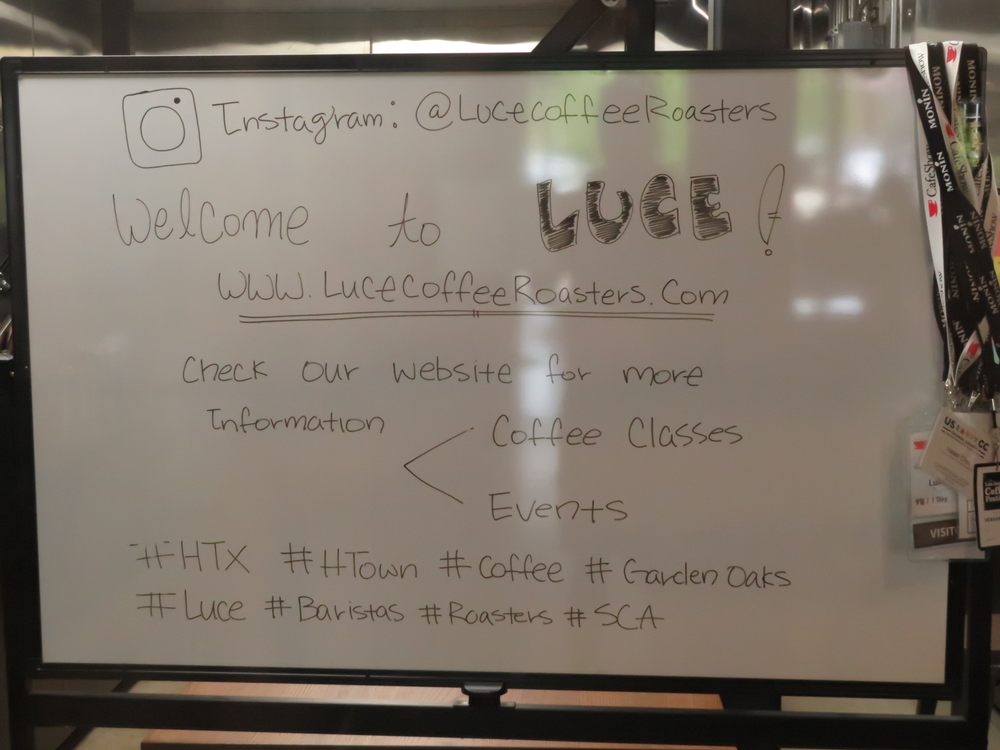 Instagram: @LuceCoffeeRoasters
Welcome to LUCE!
WWW.LuceCoffeeRoasters.Com
Check our website for more
Information
Coffee Classes
Events
#HTX #HTown #Coffee #Garden Oaks
#Luce #Baristas #Roasters #SCA
MONIN
CafeShow
MONIN
MONIN
MONIN
VISIT